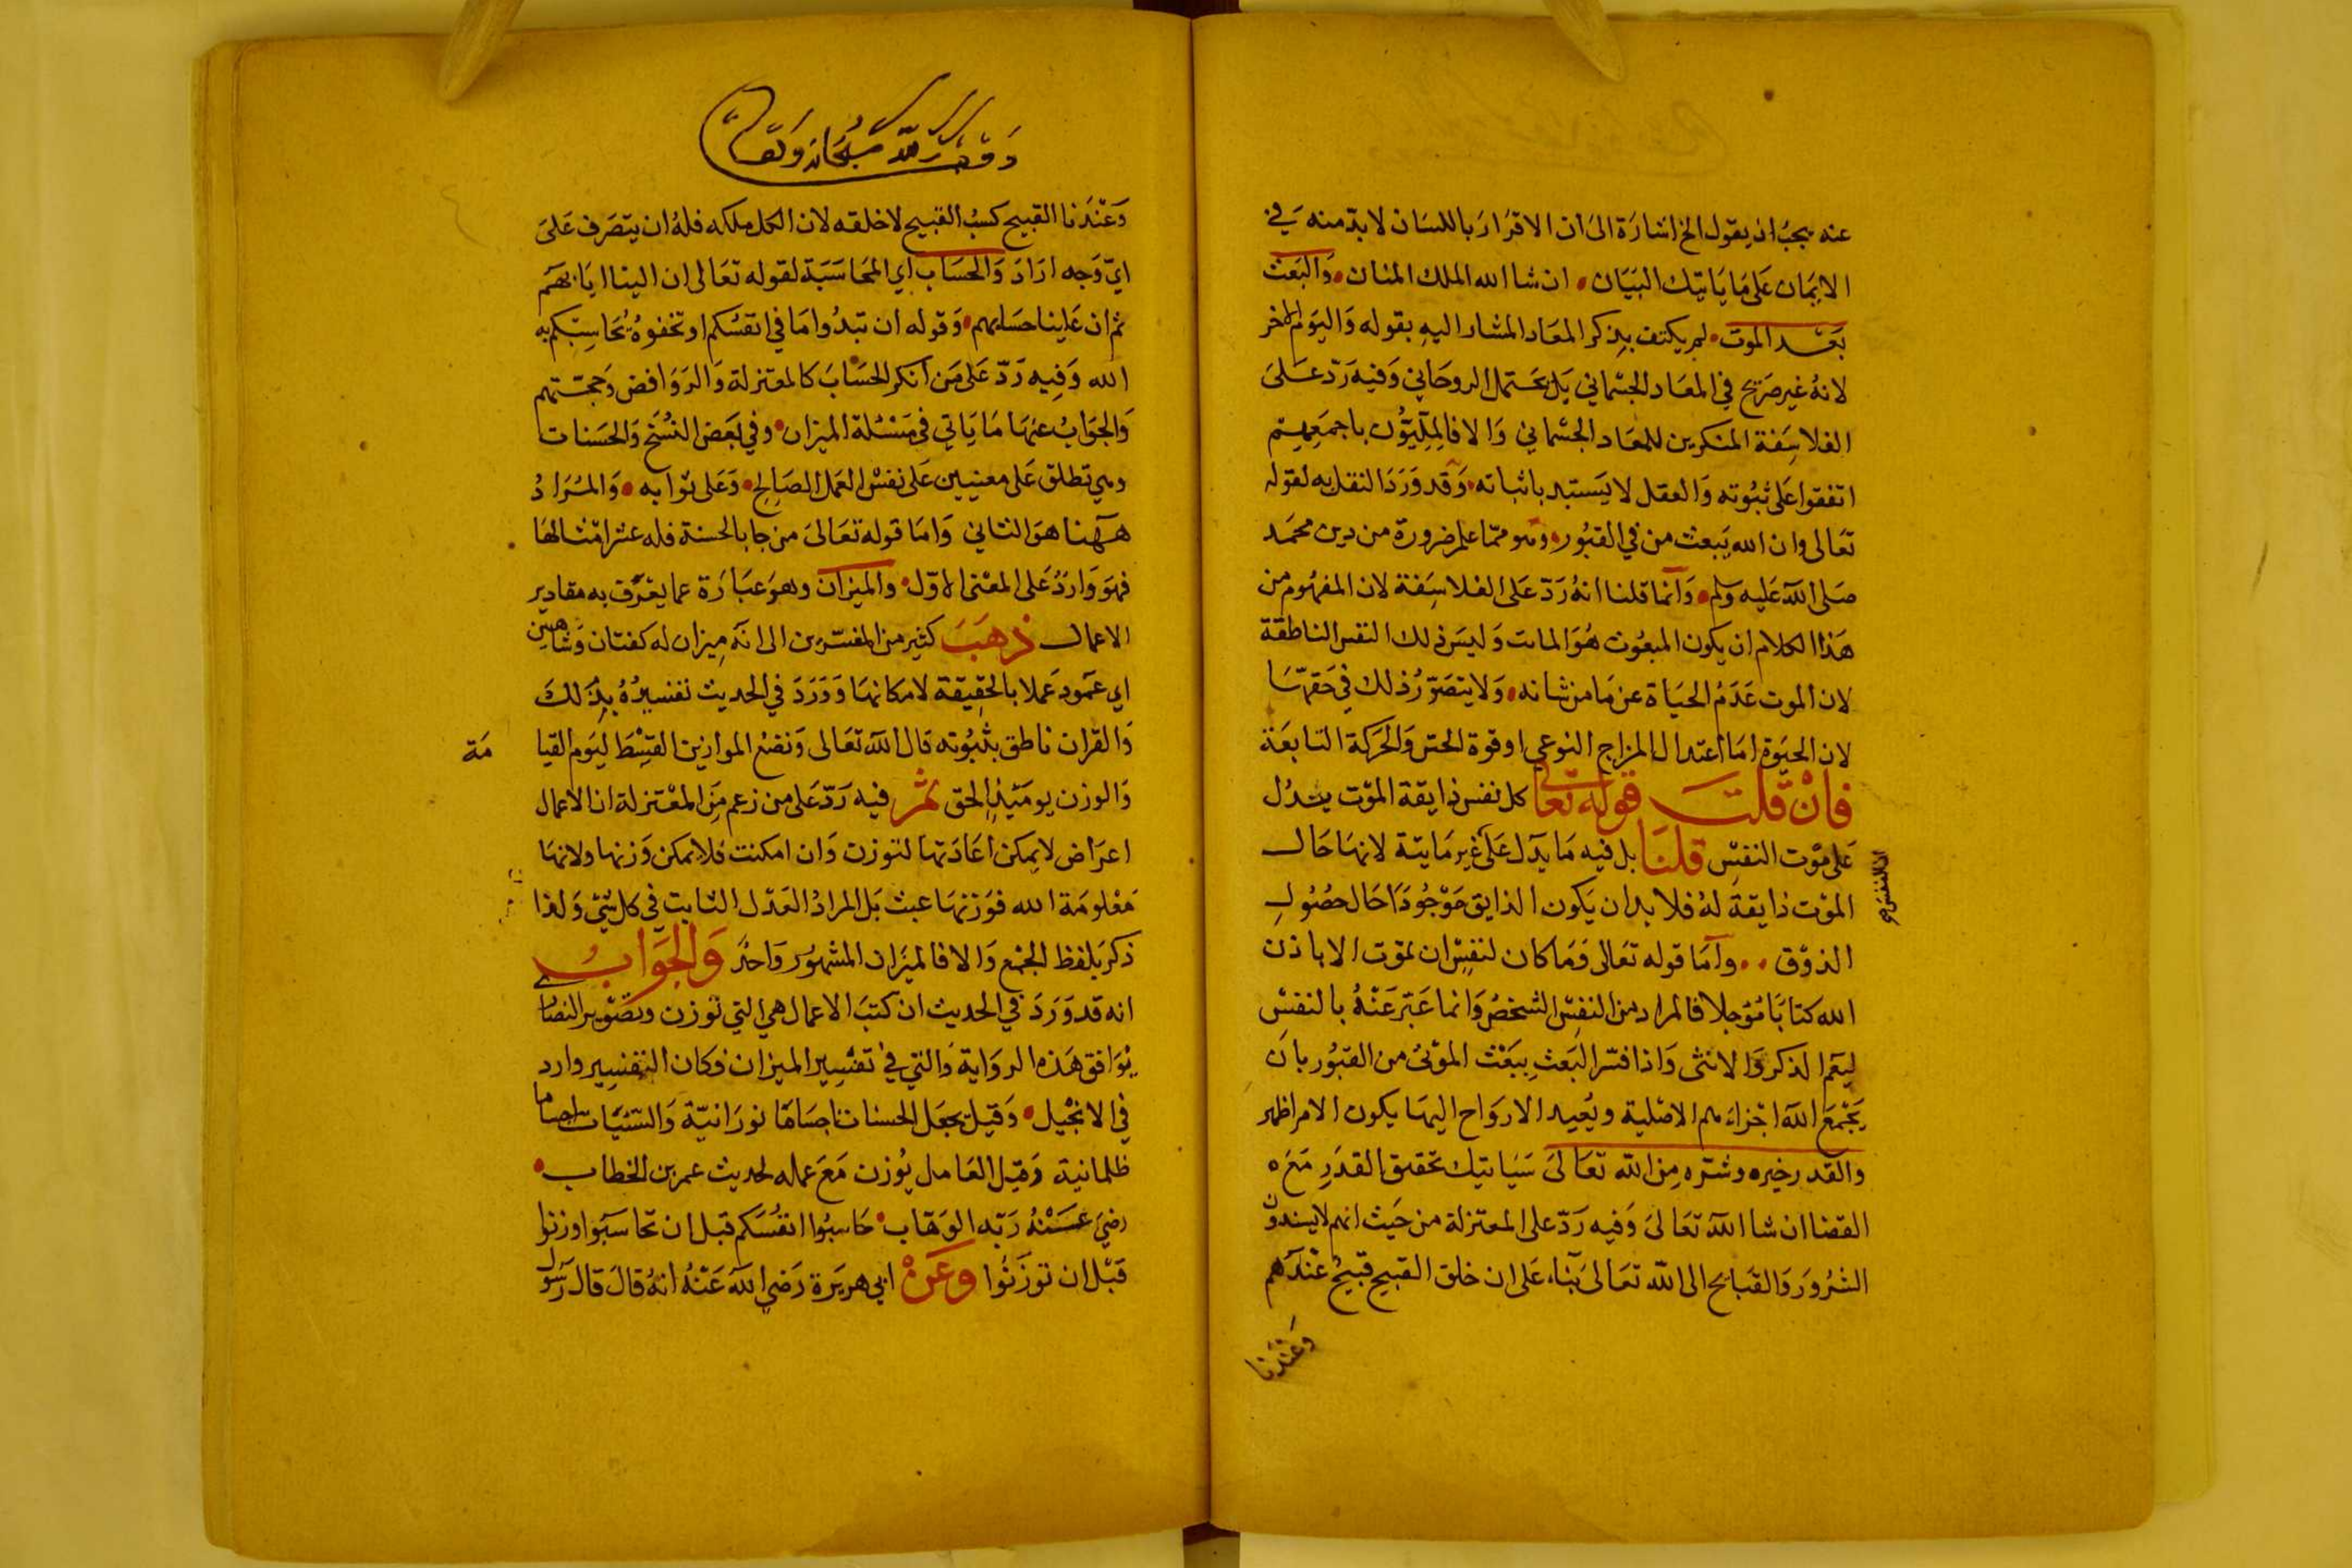 عنه يجب ان يقول الخ اشارة الى ان الاقرار باللسان لا بد منه في
الايمان على ما ياتيك البيان ان شا الله الملك المنان والبعث
بعد الموت لم يكتف بذكر المعاد المشار اليه بقوله واليوم الاخر
لانه غير صريح في المعاد الجسماني بل يحتمل الروحاني وفيه رد على
الفلاسفة المنكرين للمعاد الجسماني والا فالمليون باجمعهم
اتفقوا على ثبوته والعقل لا يستبد باثباته وقد ورد النقل به لقوله
تعالى وان الله يبعث من في القبور وهو مما علم ضرورة من دين محمد
صلى الله عليه وسلم وانما قلنا انه رد على الفلاسفة لان المفهوم من
هذا الكلام ان يكون المبعوث هو المايت وليس ذلك النفس الناطقة
لان الموت عدم الحياة عن ما من شانه ولا يتصور ذلك في حقها
لان الحيوة اما اعتدال المزاج النوعي او قوة الحس والحركة التابعة
فان قلت قوله تعالى كل نفس ذايقة الموت يدل
على موت النفس قلنا بل فيه ما يدل على غير مايتة لانها حال
الموت ذايقة له فلا بد ان يكون الذايق موجودا حال حصول
الذوق واما قوله تعالى وما كان لنفس ان تموت الا باذن
الله كتابا مؤجلا فالمراد من النفس الشخص وانما عبر عنه بالنفس
ليعم الذكر والانثى واذا فسر البعث ببعث الموتى من القبور بان
يجمع الله اجزاءهم الاصلية ويعيد الارواح اليها يكون الامر اظهر
والقدر خيره وشره من الله تعالى سياتيك تحقيق القدر مع
القضا ان شا الله تعالى وفيه رد على المعتزلة من حيث انهم لا يسندون
الشرور والقبايح الى الله تعالى بناء على ان خلق القبيح قبيح عندهم
وعندنا
وعندنا القبيح كسب القبيح لا خلقه لان الكل ملكه فله ان يتصرف على
اي وجه اراد والحساب اي المحاسبة لقوله تعالى ان الينا ايابهم
ثم ان علينا حسابهم وقوله ان تبدوا ما في انفسكم او تخفوه يحاسبكم به
الله وفيه رد على من انكر الحساب كالمعتزلة والروافض وحجتهم
والجواب عنها ما ياتي في مسئلة الميزان وفي بعض النسخ والحسنات
وهي تطلق على معنيين على نفس العمل الصالح وعلى ثوابه والمراد
ههنا هو الثاني واما قوله تعالى من جا بالحسنة فله عشر امثالها
فهو وارد على المعنى الاول والميزان وهو عبارة عما يعرف به مقادير
الاعمال ذهب كثير من المفسرين الى انه ميزان له كفتان وشاهين
اي عمود عملا بالحقيقة لامكانها وورد في الحديث تفسيره بذلك
والقران ناطق بثبوته قال الله تعالى ونضع الموازين القسط ليوم القيا
مة
والوزن يوميذ الحق ثم فيه رد على من زعم من المعتزلة ان الاعمال
اعراض لا يمكن اعادتها لتوزن وان امكنت فلا يمكن وزنها ولانها
معلومة الله فوزنها عبث بل المراد العدل الثابت في كل شئ ولذا
ذكر بلفظ الجمع والا فالميزان المشهور واحد والجواب
انه قد ورد في الحديث ان كتب الاعمال هي التي توزن وتصوير النصارى
يوافق هذه الرواية والتي في تفسير الميزان فكان التفسير وارد
في الانجيل وقيل يجعل الحسنات اجساما نورانية والسيئات اجساما
ظلمانية وقيل العامل يوزن مع عمله لحديث عمر بن الخطاب
رضي عنه ربه الوهاب حاسبوا انفسكم قبل ان تحاسبوا وزنوا
قبل ان توزنوا وعن ابي هريرة رضي الله عنه انه قال قال رسول